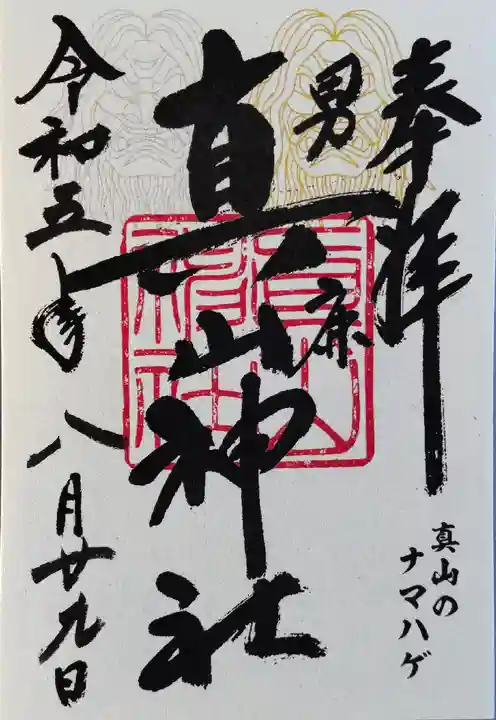 奉拝
真山の
ナマハゲ
男鹿
真山神社
令和五年八月廿九日
真山神社